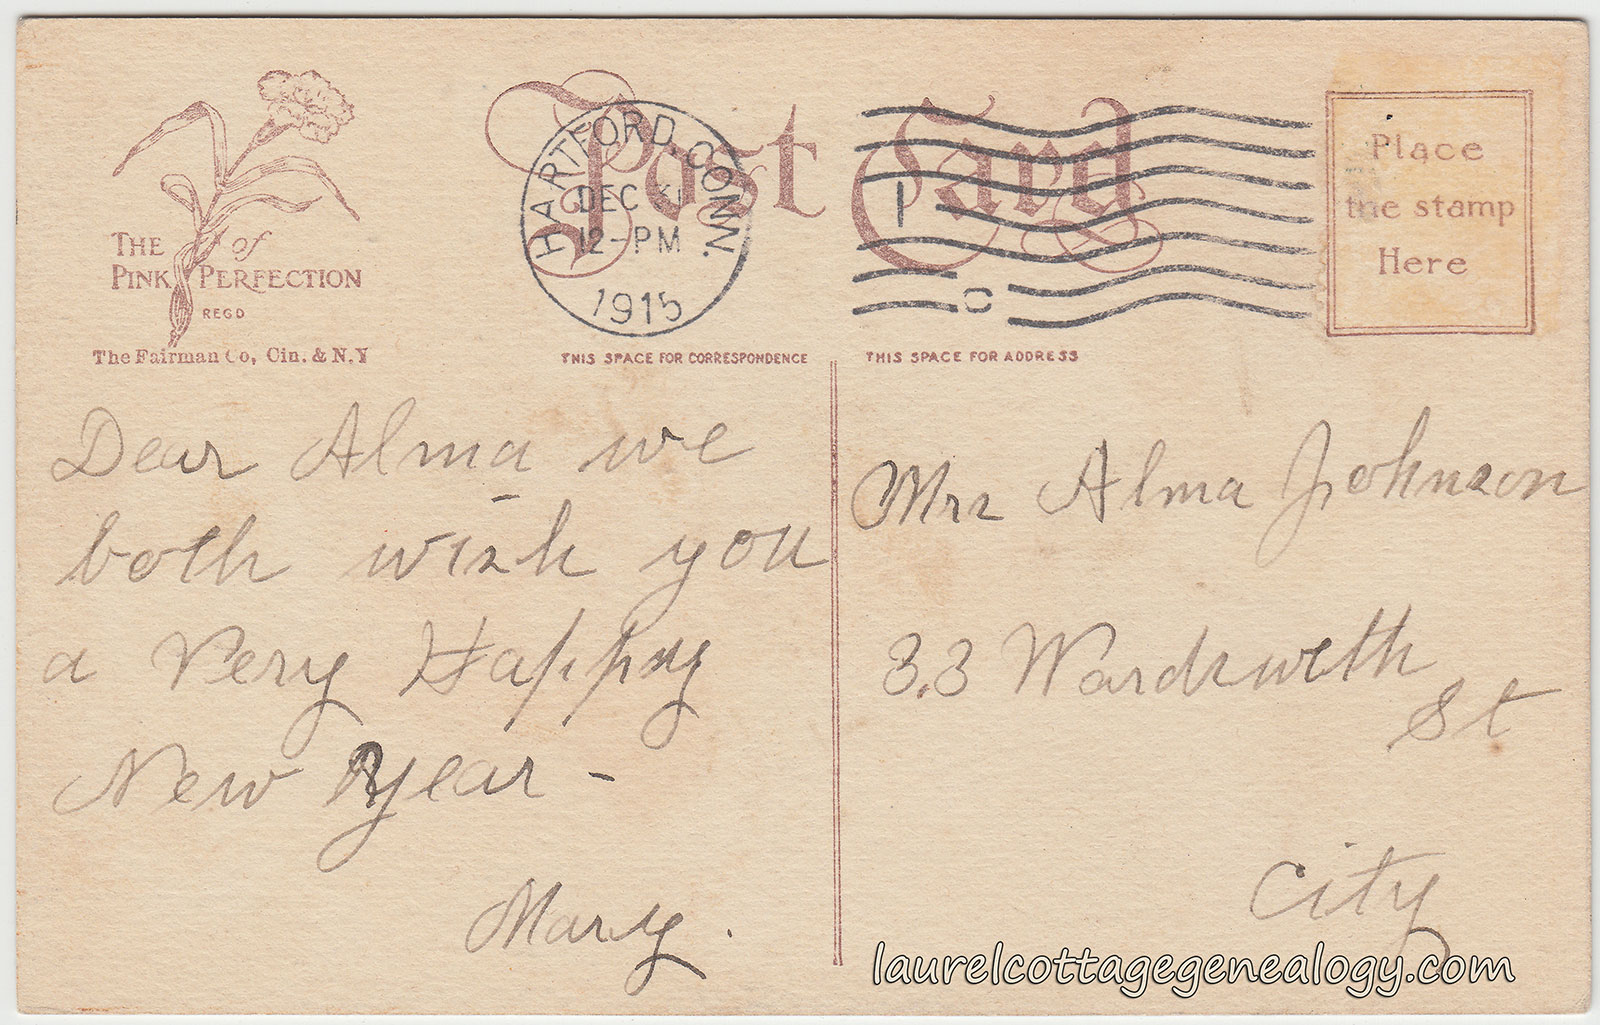 THE of
PINK PERFECTION
REGD
The Fairman Co, Cin. & N.Y
Post Card
HARTFORD, CONN.
DEC 31
12-PM
1915
1
C
Place
the stamp
Here
THIS SPACE FOR CORRESPONDENCE
THIS SPACE FOR ADDRESS
Dear Alma we
both wish you
a Very Happy
New Year -
Mary.
Mrs Alma Johnson
33 Wardsweth
St
City
laurelcottagegenealogy.com